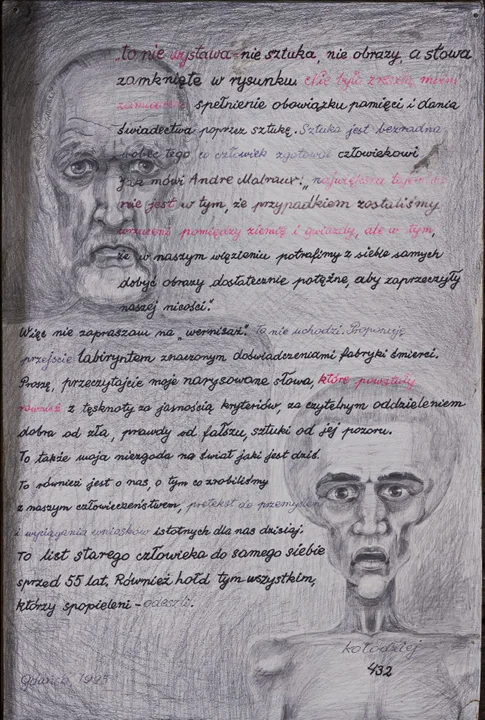 „to nie wystawa - nie sztuka, nie obrazy, a słowa
zamknięte w rysunku Nie było zresztą moim
zamiarem spełnienie obowiązku pamięci i dania
świadectwa poprzez sztukę. Sztuka jest bezradna
wobec tego co człowiek zgotował człowiekowi
jak mówi Andre Malraux: „największą tajemnicą
nie jest w tym, że przypadkiem zostaliśmy
wrzuceni pomiędzy ziemię i gwiazdy, ale w tym,
że w naszym więzieniu potrafimy z siebie samych
dobyć obrazy dostatecznie potężne, aby zaprzeczyły
naszej nicości".
Więc nie zapraszam na „wernisaż". To nie uchodzi. Proponuję
przejście labiryntem znaczonym doświadczeniami fabryki śmierci.
Proszę, przeczytajcie moje narysowane słowa, które powstały
również z tęsknoty za jasnością kryteriów, za czytelnym oddzieleniem
dobra od zła, prawdy od fałszu, sztuki od jej pozoru.
To także moja niezgoda na świat jaki jest dziś.
To również jest o nas, o tym co zrobiliśmy
z naszym człowieczeństwem, pretekst do przemyśleń
i wyciągania wniosków istotnych dla nas dzisiaj.
To list starego człowieka do samego siebie
sprzed 55 lat. Również hołd tym wszystkim,
którzy spopieleni - odeszli.
kołodziej
432
Gdańsk 1995